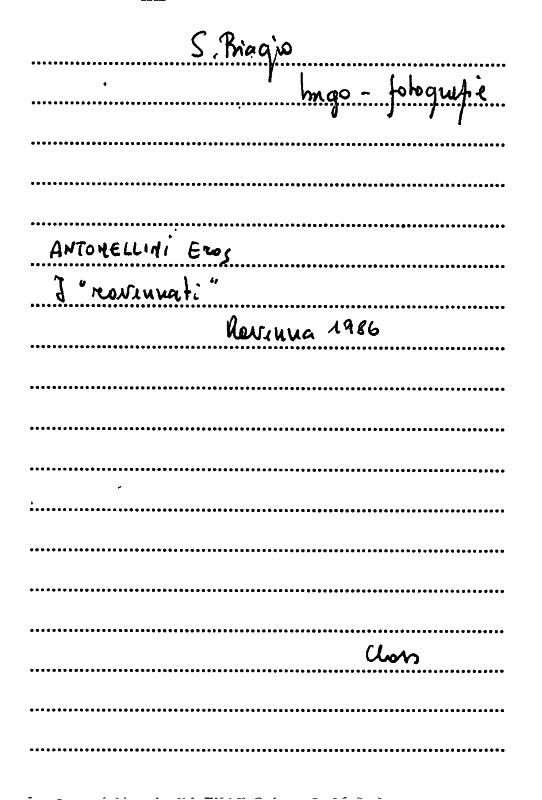 S. Biagio
borgo - fotografie
ANTONELLINI Eros
I "ravennati"
Ravenna 1986
Class